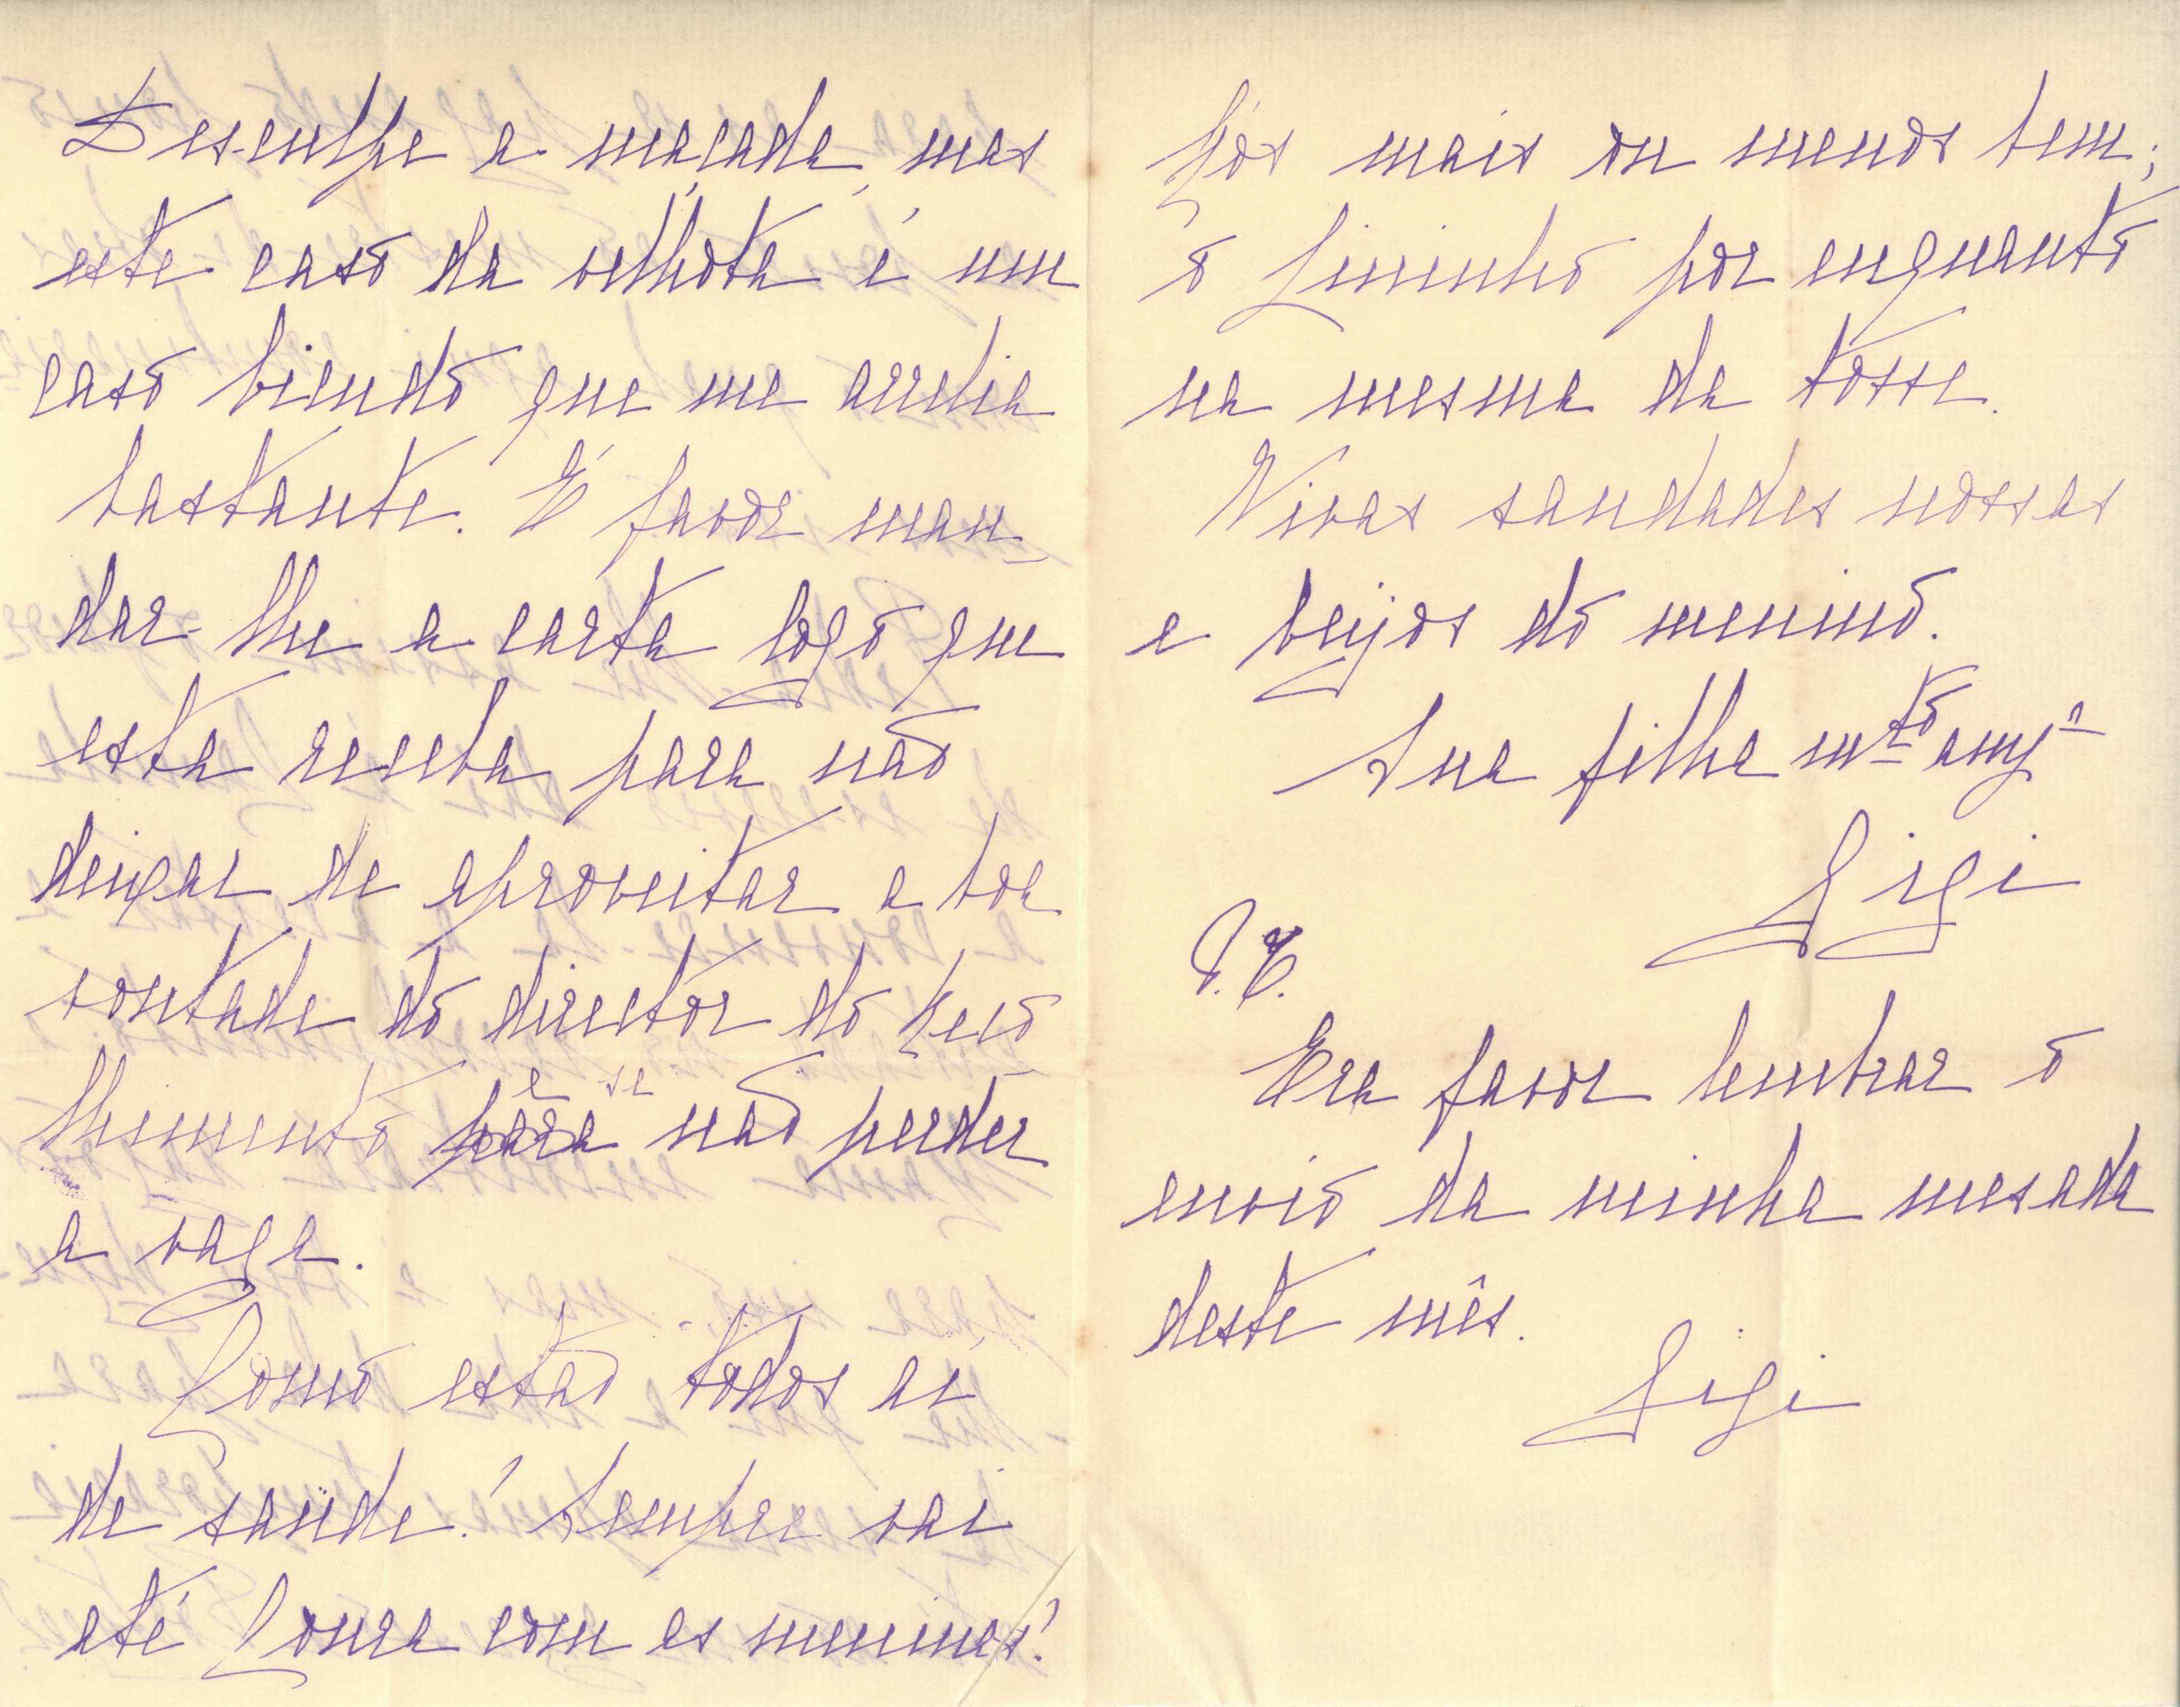 Desculpe a maçada, mas
este caso da velhota é um
caso bicudo que me arrelia
bastante. É favor man-
dar-lhe a carta logo que
esta receba para não
deixar de aproveitar a boa
vontade do director do Reco-
lhimento e se não perder
a vaga.
Como estão todos aí
de saúde? Sempre vai
até Loura com as meninas?
Nós mais ou menos bem;
o Lininho por enquanto
na mesma da tosse.
Vivas saudades nossas
e beijos do menino.
Sua filha mto amga
Gigi
P.S.
Era favor lembrar o
envio da minha mesada
deste mês.
Gigi